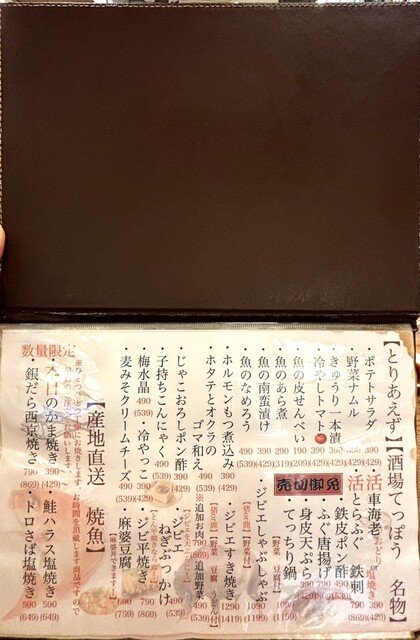 【とりあえず】
・ポテトサラダ 390 (429)
・野菜ナムル 390 (429)
・きゅうり一本漬 390 (429)
・冷やしトマト 290 (319)
・魚の皮せんべい 190 (209)
・魚のあら煮 390 (429)
・魚の南蛮漬け 390 (429)
・魚のなめろう 490 (539)
・ホルモンもつ煮込み 390 (429)
・ホタテとオクラの
ゴマ和え 490 (539)
・じゃこおろしポン酢 390 (429)
・子持ちこんにゃく 390 (429)
・梅水晶 490 (539)
・冷やっこ 390 (429)
・麦みそクリームチーズ 490 (539)
【酒場てっぽう 名物】
活車海老 おどり or 塩焼き
活とらふぐ 鉄刺 790 (869)
鉄皮ポン酢 490
ふぐ唐揚げ 790
身皮天ぷら
てっちり鍋
売切御免
ジビエしゃぶしゃぶ
ジビエすき焼き
※追加お肉 790
追加野菜 490 (539)
ジビエ
ねぎぶっかけ 490 (539)
ジビ平焼き 790
麻婆豆腐
【産地直送 焼魚】
数量限定
・本日のかま焼き
・銀だら西京焼き 790 (869)
・鮭ハラス塩焼き 590 (649)
・トロさば塩焼き 590 (649)